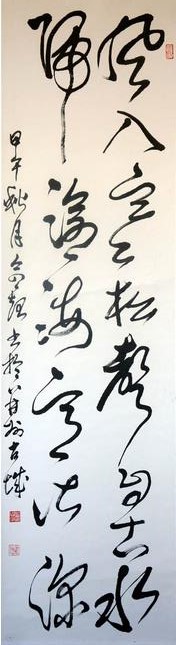 風入寒松聲自古水
歸滄海意皆深
甲午秋月書於古城